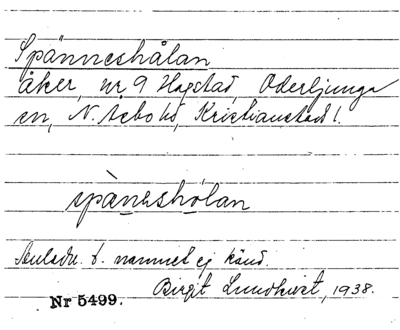 Spänneshålan
åker, nr 9 Hagstad, Oderljunga
sn, N. Åsbo hd, Kristianstad l.
spànəshòlan
Anledn. t. namnet ej känd.
Birgit Lundkvist, 1938.
Nr 5499.